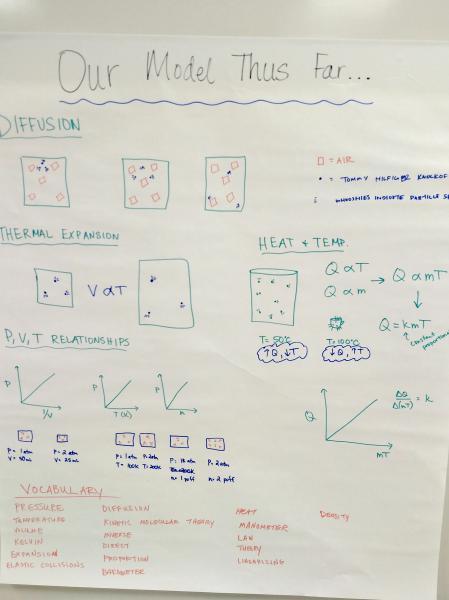 OUR MODEL THUS FAR...
DIFFUSION
= AIR
= TOMMY HILFIGER KNOCKOF
WHOOSHIES INDICATE PARTICLE S
THERMAL EXPANSION
V α T
HEAT & TEMP.
Q α T
Q α m
→ Q α mT
Q = kmT
constant
T = 50°C
T = 100°C
↑Q, ↓T
↓Q, ↑T
P, V, T RELATIONSHIPS
P
1/V
P
T (K)
P
n
P = 1 atm
V = 50 mL
P = 2 atm
V = 25 mL
P = 1 atm
T = 100K
P = 2 atm
T = 200K
n = 1 puff
P = 2 atm
n = 2 puff
Q
mT
ΔQ/Δ(mT) = k
VOCABULARY
PRESSURE
TEMPERATURE
VOLUME
KELVIN
EXPANSION
ELASTIC COLLISIONS
DIFFUSION
KINETIC MOLECULAR THEORY
INVERSE
DIRECT
PROPORTION
BAROMETER
HEAT
MANOMETER
LAW
THEORY
LINEARIZING
DENSITY